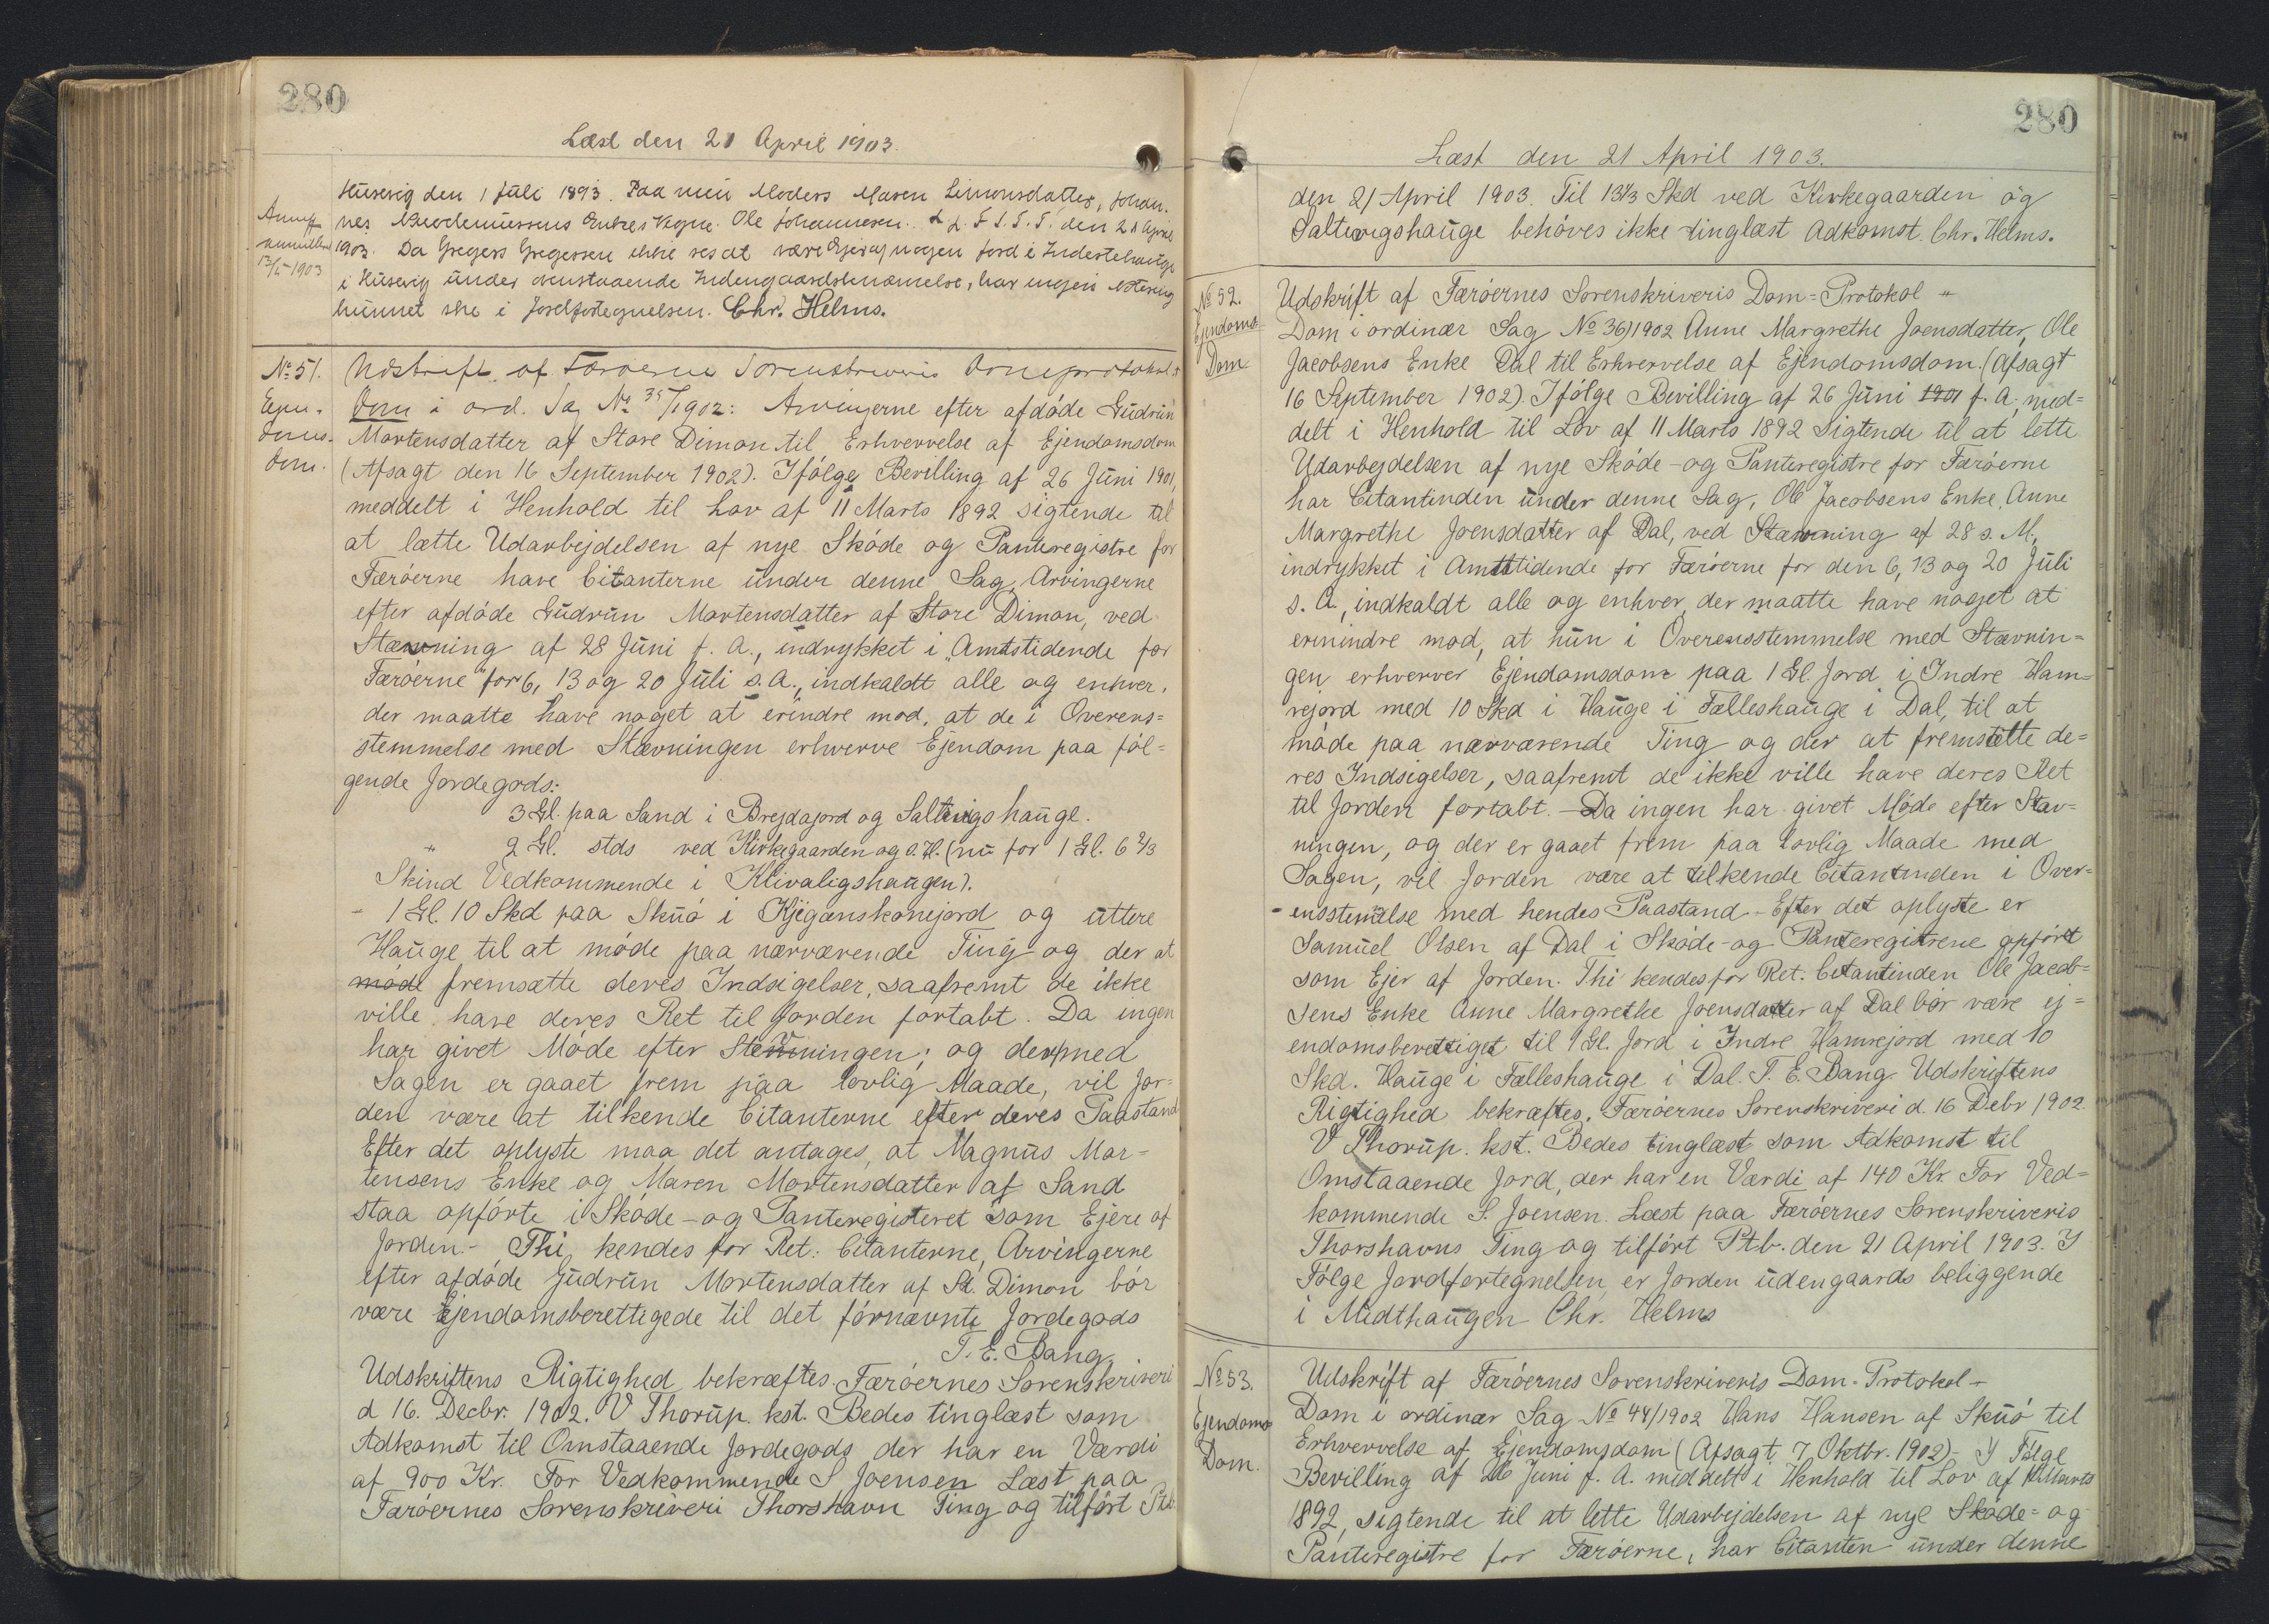 280
Læst den 21 April 1903.
Husevig den 1 Juli 1893. Paa min Moders Maren Simonsdatter, Johan-
nes Enkes Vegne. Ole Johannesen. L. L. F. S. T. T. den 21 April
1903. Da Gregers Gregersen ikke ses at være Ejer af nogen Jord i Inderstehauge
i Husevig under ovenstaaende Indengaardsbenævnelse, har ingen Notering
kunnet ske i Jordfortegnelsen. Chr. Helms.
13/5 1903
No. 51.
Ejen-
doms-
dom.
Udskrift af Færøernes Sorenskriveris Domsprotokol.
Dom i ord. Sag No. 35/1902: Arvingerne efter afdøde Gudrun
Mortensdatter af Store Dimon til Erhvervelse af Ejendomsdom
(Afsagt den 16 September 1902). Ifølge Bevilling af 26 Juni 1901,
meddelt i Henhold til Lov af 11 Marts 1892 sigtende til
at lætte Udarbejdelsen af nye Skøde og Panteregistre for
Færøerne have Citanterne under denne Sag, Arvingerne
efter afdøde Gudrun Mortensdatter af Store Dimon, ved
Stævning af 28 Juni f. A., indrykket i "Amtstidende for
Færøerne" for 6, 13 og 20 Juli s. A., indkaldt alle og enhver,
der maatte have noget at erindre mod, at de i Overens=
stemmelse med Stævningen erhverve Ejendom paa føl=
gende Jordegods:
3 Gl. paa Sand i Brejdajord og Saltvigshauge.
" 2 Gl. stds ved Kirkegaarden og S. H. (nu for 1 Gl. 6 2/3
Skind Vedkommende i Klivaligshaugen).
- 1 Gl. 10 Skd paa Skuø i Kjeganskonejord og uttere
Hauge til at møde paa nærværende Ting og der at
møde fremsætte deres Indsigelser, saafremt de ikke
ville have deres Ret til Jorden fortabt. Da ingen
har givet Møde efter Stævningen, og der med
Sagen er gaaet frem paa lovlig Maade, vil Jor=
den være at tilkende Citanterne efter deres Paastand
Efter det oplyste maa det antages, at Magnus Mor=
tensens Enke og Maren Mortensdatter af Sand
staa opførte i Skøde- og Panteregisteret som Ejere af
Jorden.- Thi kendes for Ret: Citanterne, Arvingerne
efter afdøde Gudrun Mortensdatter af St. Dimon bør
være Ejendomsberettigede til det førnævnte Jordegods
T. E. Bang
Udskriftens Rigtighed bekræftes. Færøernes Sorenskriveri
d 16. Decbr. 1902. V Thorup. kst. Bedes tinglæst som
Adkomst til Omstaaende Jordegods der har en Værdi
af 900 Kr. For Vedkommende S Joensen Læst paa
Færøernes Sorenskriveri Thorshavn Ting og tilført Ptb.
280
Læst den 21 April 1903.
den 21 April 1903. Til 13 1/3 Skd ved Kirkegaarden og
Saltvigshauge behøves ikke tinglæst Adkomst. Chr. Helms.
No 52.
Ejendoms=
Dom
Udskrift af Færøernes Sorenskriveris Dom=Protokol "
Dom i ordinær Sag No 36/1902 Anne Margrethe Joensdatter, Ole
Jacobsens Enke Dal til Erhvervelse af Ejendomsdom. (Afsagt
16 September 1902). Ifølge Bevilling af 26 Juni 1901 f. A., med=
delt i Henhold til Lov af 11 Marts 1892 sigtende til at lette
Udarbejdelsen af nye Skøde- og Panteregistre for Færøerne
har Citantinden under denne Sag, Ole Jacobsens Enke, Anne
Margrethe Joensdatter af Dal, ved Stævning af 28 s. M.,
indrykket i Amtstidende for Færøerne for den 6, 13 og 20 Juli
s. A., indkaldt alle og enhver, der maatte have noget at
erinindre mod, at hun i Overensstemmelse med Stævnin=
gen erhverver Ejendomsdom paa 1 Gl. Jord i Indre Ham=
rejord med 10 Skd i Hauge i Fælleshauge i Dal, til at
møde paa nærværende Ting og der at fremsætte de=
res Indsigelser, saafremt de ikke ville have deres Ret
til Jorden fortabt. - Da ingen har givet Møde efter Stæv=
ningen, og der er gaaet frem paa lovlig Maade med
Sagen, vil Jorden være at tilkende Citantinden i Over-
ensstemelse med hendes Paastand - Efter det oplyste er
Samuel Olsen af Dal i Skøde- og Panteregistrene opført
som Ejer af Jorden. Thi kendes for Ret: Citantinden Ole Jacob=
sens Enke Anne Margrethe Joensdatter af Dal bør være ej=
endomsberettiget til 1 Gl. Jord i Indre Hamrejord med 10
Skd. Hauge i Fælleshauge i Dal. T. E. Bang. Udskriftens
Rigtighed bekræftes. Færøernes Sorenskriveri d. 16 Debr 1902.
V Thorup. kst. Bedes tinglæst som Adkomst til
Omstaaende Jord, der har en Værdi af 140 Kr. For Ved=
kommende S. Joensen. Læst paa Færøernes Sorenskriveris
Thorshavns Ting og tilført Ptb. den 21 April 1903. I
Følge Jordfortegnelsen er Jorden udengaards beliggende
i Midthaugen Chr. Helms
No 53.
Ejendoms
Dom.
Udskrift af Færøernes Sorenskriveris Dom-Protokol -
Dom i ordinær Sag No 44/1902 Hans Hansen af Skuø til
Erhvervelse af Ejendomsdom (Afsagt 7 Oktbr. 1902) - I Følge
Bevilling af 26 Juni f. A. meddelt i Henhold til Lov af 11 Marts
1892, sigtende til at lette Udarbejdelsen af nye Skøde= og
Panteregistre for Færøerne, har Citanten under denne